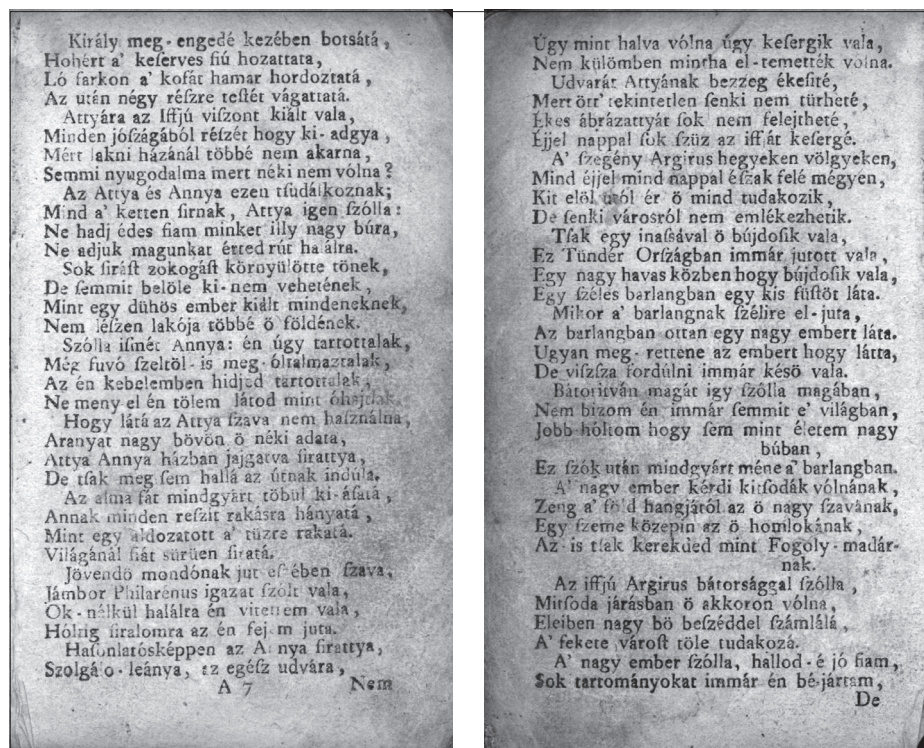 Király meg-engedé kezében botsátá,
Hohért a' keſerves fiú hozattata,
Ló farkon a' kofát hamar hordoztatá,
Az után négy réſzre teſtét vágattatá.
Attyára az Iffjú viſzont kiált vala,
Minden jóſzágából réſzét hogy ki-adgya,
Mért lakni házánál többé nem akarna,
Semmi nyugodalma mert néki nem vólna?
Az Attya és Annya ezen tſudálkoznak;
Mind a' ketten ſirnak, Attya igen ſzólla:
Ne hadj édes fiam minket illy nagy búra,
Ne adjuk magunkat érted rút halálra.
Sok ſiráſt zokogáſt környülötte tönek,
De ſemmit belöle ki-nem vehetének,
Mint egy dühös ember kiált mindeneknek,
Nem léſzen lakója többé ö földének.
Szólla iſmét Annya: én úgy tartottalak,
Még fuvó ſzeltöl-is meg-óltalmaztalak,
Az én kebelemben hidjed tartottalak,
Ne meny el én tölem látod mint óhajtlak.
Hogy látá az Attya ſzava nem haſználna,
Aranyat nagy bövön ö néki adata,
Attya Annya házban jajgatva ſirattya,
De tſak meg ſem hallá az útnak indúla.
Az alma fát mindgyárt töbül ki-áſatá,
Annak minden reſzit rakásra hányatá,
Mint egy áldozatott a' tüzre rakatá.
Világánál fiát sürüen ſiratá.
Jövendö mondónak jut eſzében ſzava,
Jámbor Philarenus igazat ſzólt vala,
Ok-nélkül halálra én vitettem vala,
Hóltig ſiralomra az én fejem juta.
Haſonlatósképpen az Annya ſirattya,
Szolgálo-leánya, az egéſz udvára,
A 7 Nem
Úgy mint halva vólna úgy keſergik vala,
Nem külömben mintha el-temették vólna.
Udvarát Attyának bezzeg ékeſité,
Mert ött' tekintetlen ſenki nem türheté,
Ékes ábrázattyát ſok nem felejtheté,
Éjjel nappal ſok ſzüz az iffját keſergé.
A' ſzegény Argirus hegyeken völgyeken,
Mind éjjel mind nappal éſzak felé mégyen,
Kit elöl utól ér ö mind tudakozik,
De ſenki városról nem emlékezhetik.
Tſak egy inaſsával ö bújdoſik vala,
Ez Tündér Orſzágban immár jutott vala,
Egy nagy havas közben hogy bújdoſik vala,
Egy ſzéles barlangban egy kis füſtöt láta.
Mikor a' barlangnak ſzélire el-juta,
Az barlangban ottan egy nagy embert láta.
Ugyan meg-rettene az embert hogy látta,
De viſzſza fordúlni immár késö vala.
Bátoritván magát igy ſzólla magában,
Nem bizom én immár ſemmit e' világban,
Jobb hóltom hogy ſem mint életem nagy
búban,
Ez ſzók után mindgyárt méne a' barlangban.
A' nagy ember kérdi kitſodák vólnának,
Zeng a' föld hangjától az ö nagy ſzavának,
Egy ſzeme közepin az ö homlokának,
Az is tſak kerekded mint Fogoly-madár-
nak.
Az iffjú Argirus bátorsággal ſzólla,
Mitſoda járásban ö akkoron vólna,
Eleiben nagy bö beſzéddel ſzámlálá,
A' fekete várost töle tudakozá.
A' nagy ember ſzólla, hallod-é jó fiam,
Sok tartományokat immár én bé-jártam,
De